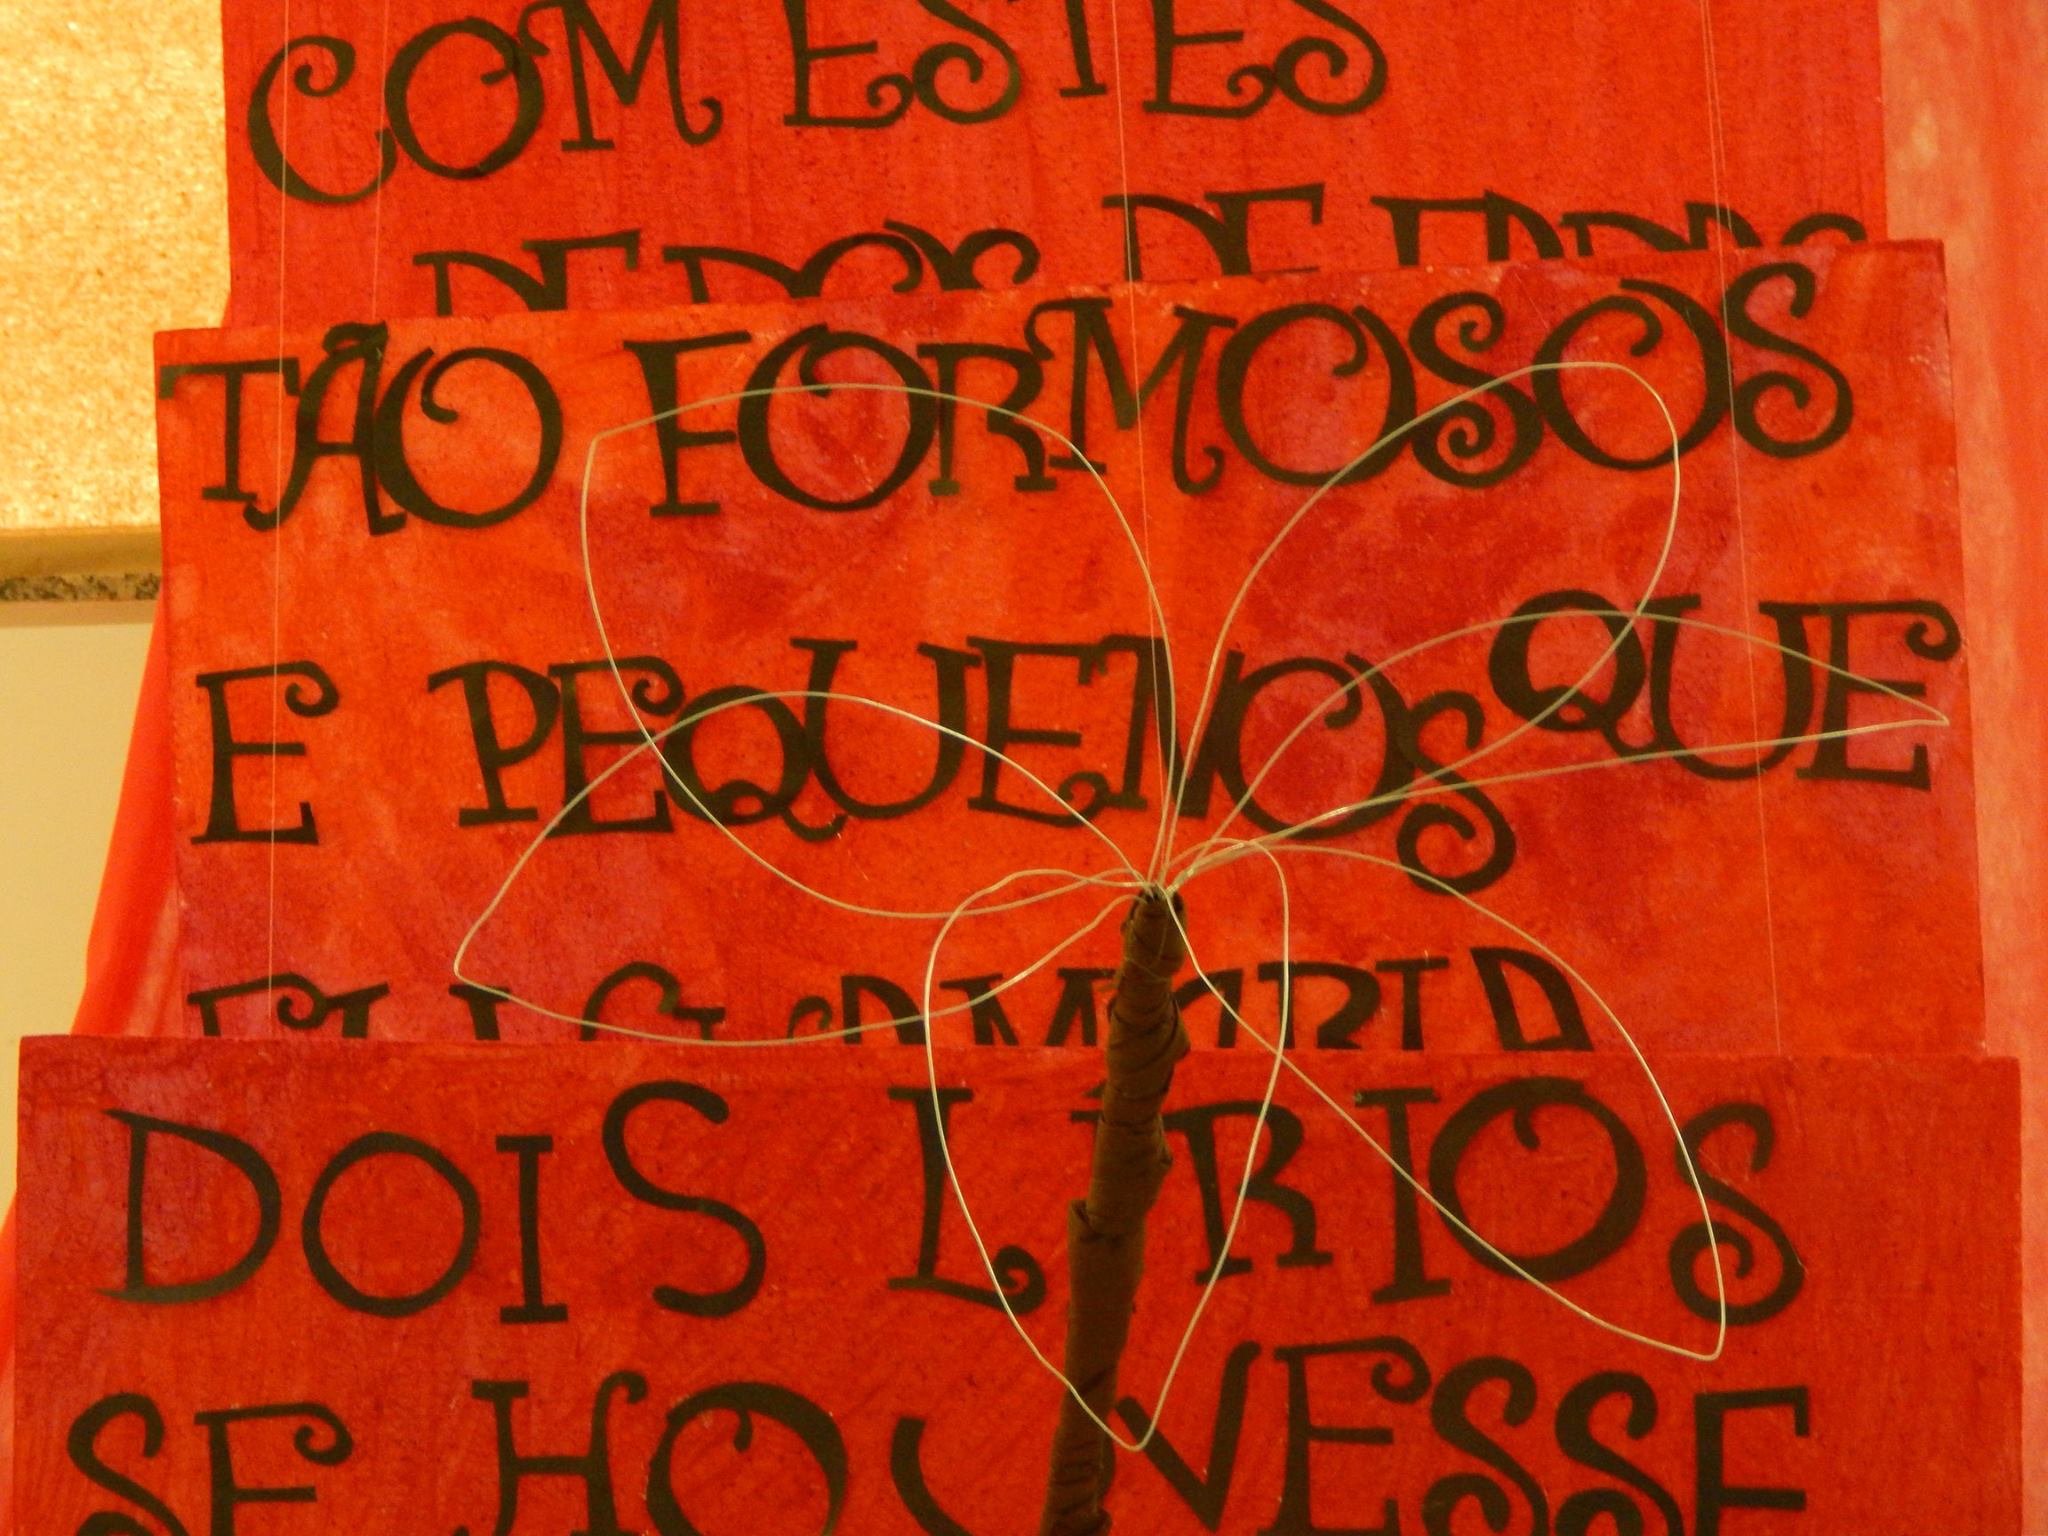 COM ESTES
DEDOS DE FADAS
TÃO FORMOSOS
E PEQUENOS QUE
DOIS LÍRIOS
SE HOUVESSE